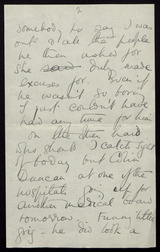 2
somebody to say I was
out & all the people
he then asked for
She duly made
excuses for. Even if
he wasn't so boring
I just couldn't have
had any time for him
on the other hand
you should I catch sight
of today but Colin
Duncan at one of the
hospitals going up for
another medical board
tomorrow. Funny little
prig - he did look a